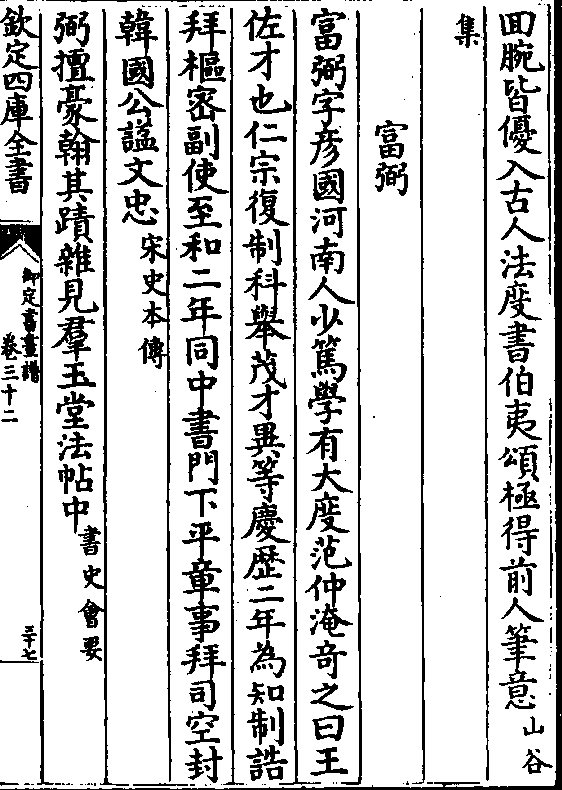 囬腕皆優入古人法度書伯夷頌極得前人筆意山谷
集
富弼
富弼字彦國河南人少篤學有大度范仲淹竒之曰王
佐才也仁宗復制科舉茂才異等慶歴二年為知制誥
拜樞密副使至和二年同中書門下平章事拜司空封
韓國公諡文忠宋史本傳
弼擅豪翰其蹟雜見羣玉堂法帖中書史會要
欽定四庫全書
御定書畫譜
卷三十二
三十七